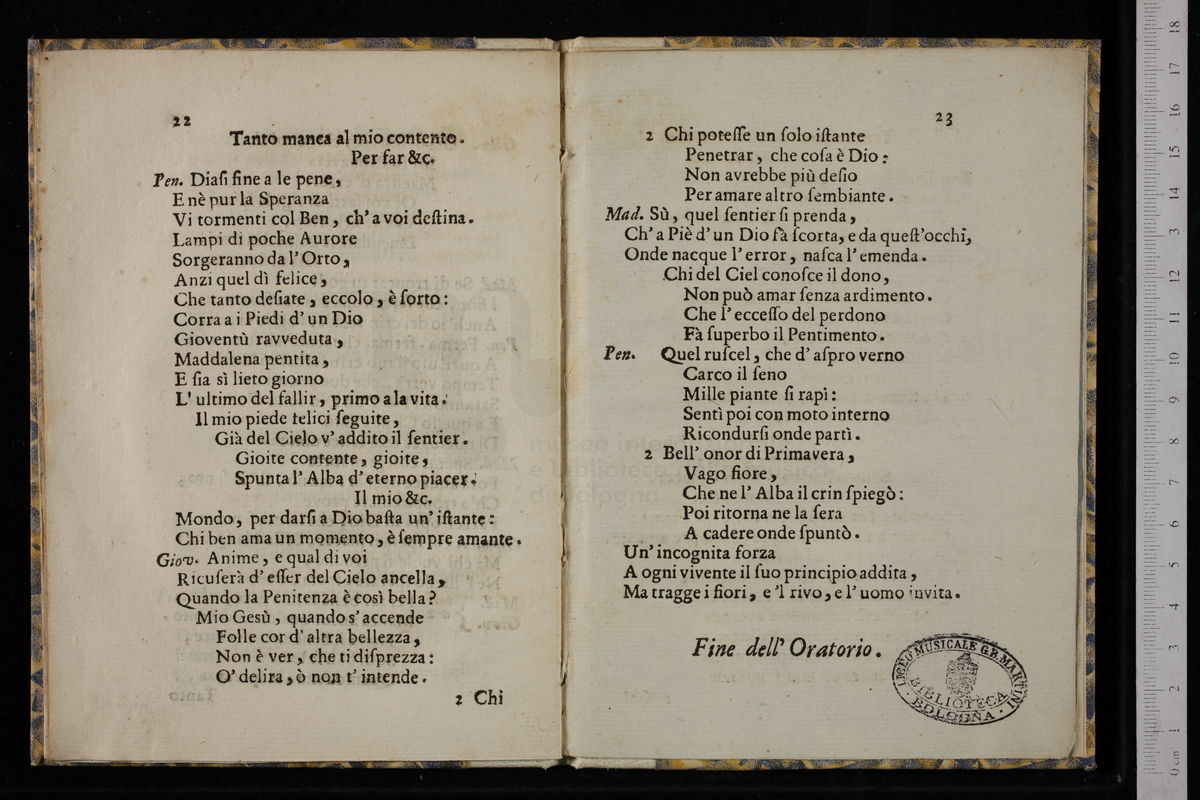 22
Tanto manca al mio contento.
Per far &c.
Pen. Diaſi fine a le pene,
E nè pur la Speranza
Vi tormenti col Ben, ch' a voi deſtina.
Lampi di poche Aurore
Sorgeranno da l' Orto,
Anzi quel dì felice,
Che tanto deſiate, eccolo, è ſorto:
Corra a i Piedi d' un Dio
Gioventù ravveduta,
Maddalena pentita,
E ſia sì lieto giorno
L' ultimo del fallir, primo a la vita.
Il mio piede felici ſeguite,
Già del Cielo v' addito il ſentier.
Gioite contente, gioite,
Spunta l' Alba d' eterno piacer.
Il mio &c.
Mondo, per darſi a Dio baſta un' iſtante:
Chi ben ama un momento, è ſempre amante.
Giov. Anime, e qual di voi
Ricuſerà d' eſſer del Cielo ancella,
Quando la Penitenza è così bella?
Mio Gesù, quando s' accende
Folle cor d' altra bellezza,
Non è ver, che ti diſprezza:
O' delira, ò non t' intende.
2 Chi
23
2 Chi poteſſe un ſolo iſtante
Penetrar, che coſa è Dio:
Non avrebbe più deſio
Per amare altro ſembiante.
Mad. Sù, quel ſentier ſi prenda,
Ch' a Piè d' un Dio fà ſcorta, e da queſt' occhi,
Onde nacque l' error, naſca l' emenda.
Chi del Ciel conoſce il dono,
Non può amar ſenza ardimento.
Che l' ecceſſo del perdono
Fà ſuperbo il Pentimento.
Pen. Quel ruſcel, che d' aſpro verno
Carco il ſeno
Mille piante ſi rapì:
Sentì poi con moto interno
Ricondurſi onde partì.
2 Bell' onor di Primavera,
Vago fiore,
Che ne l' Alba il crin ſpiegò:
Poi ritorna ne la ſera
A cadere onde ſpuntò.
Un' incognita forza
A ogni vivente il ſuo principio addita,
Ma tragge i fiori, e 'l rivo, e l' uomo invita.
Fine dell' Oratorio.
LICEO MUSICALE G.B. MARTINI
BIBLIOTECA
BOLOGNA